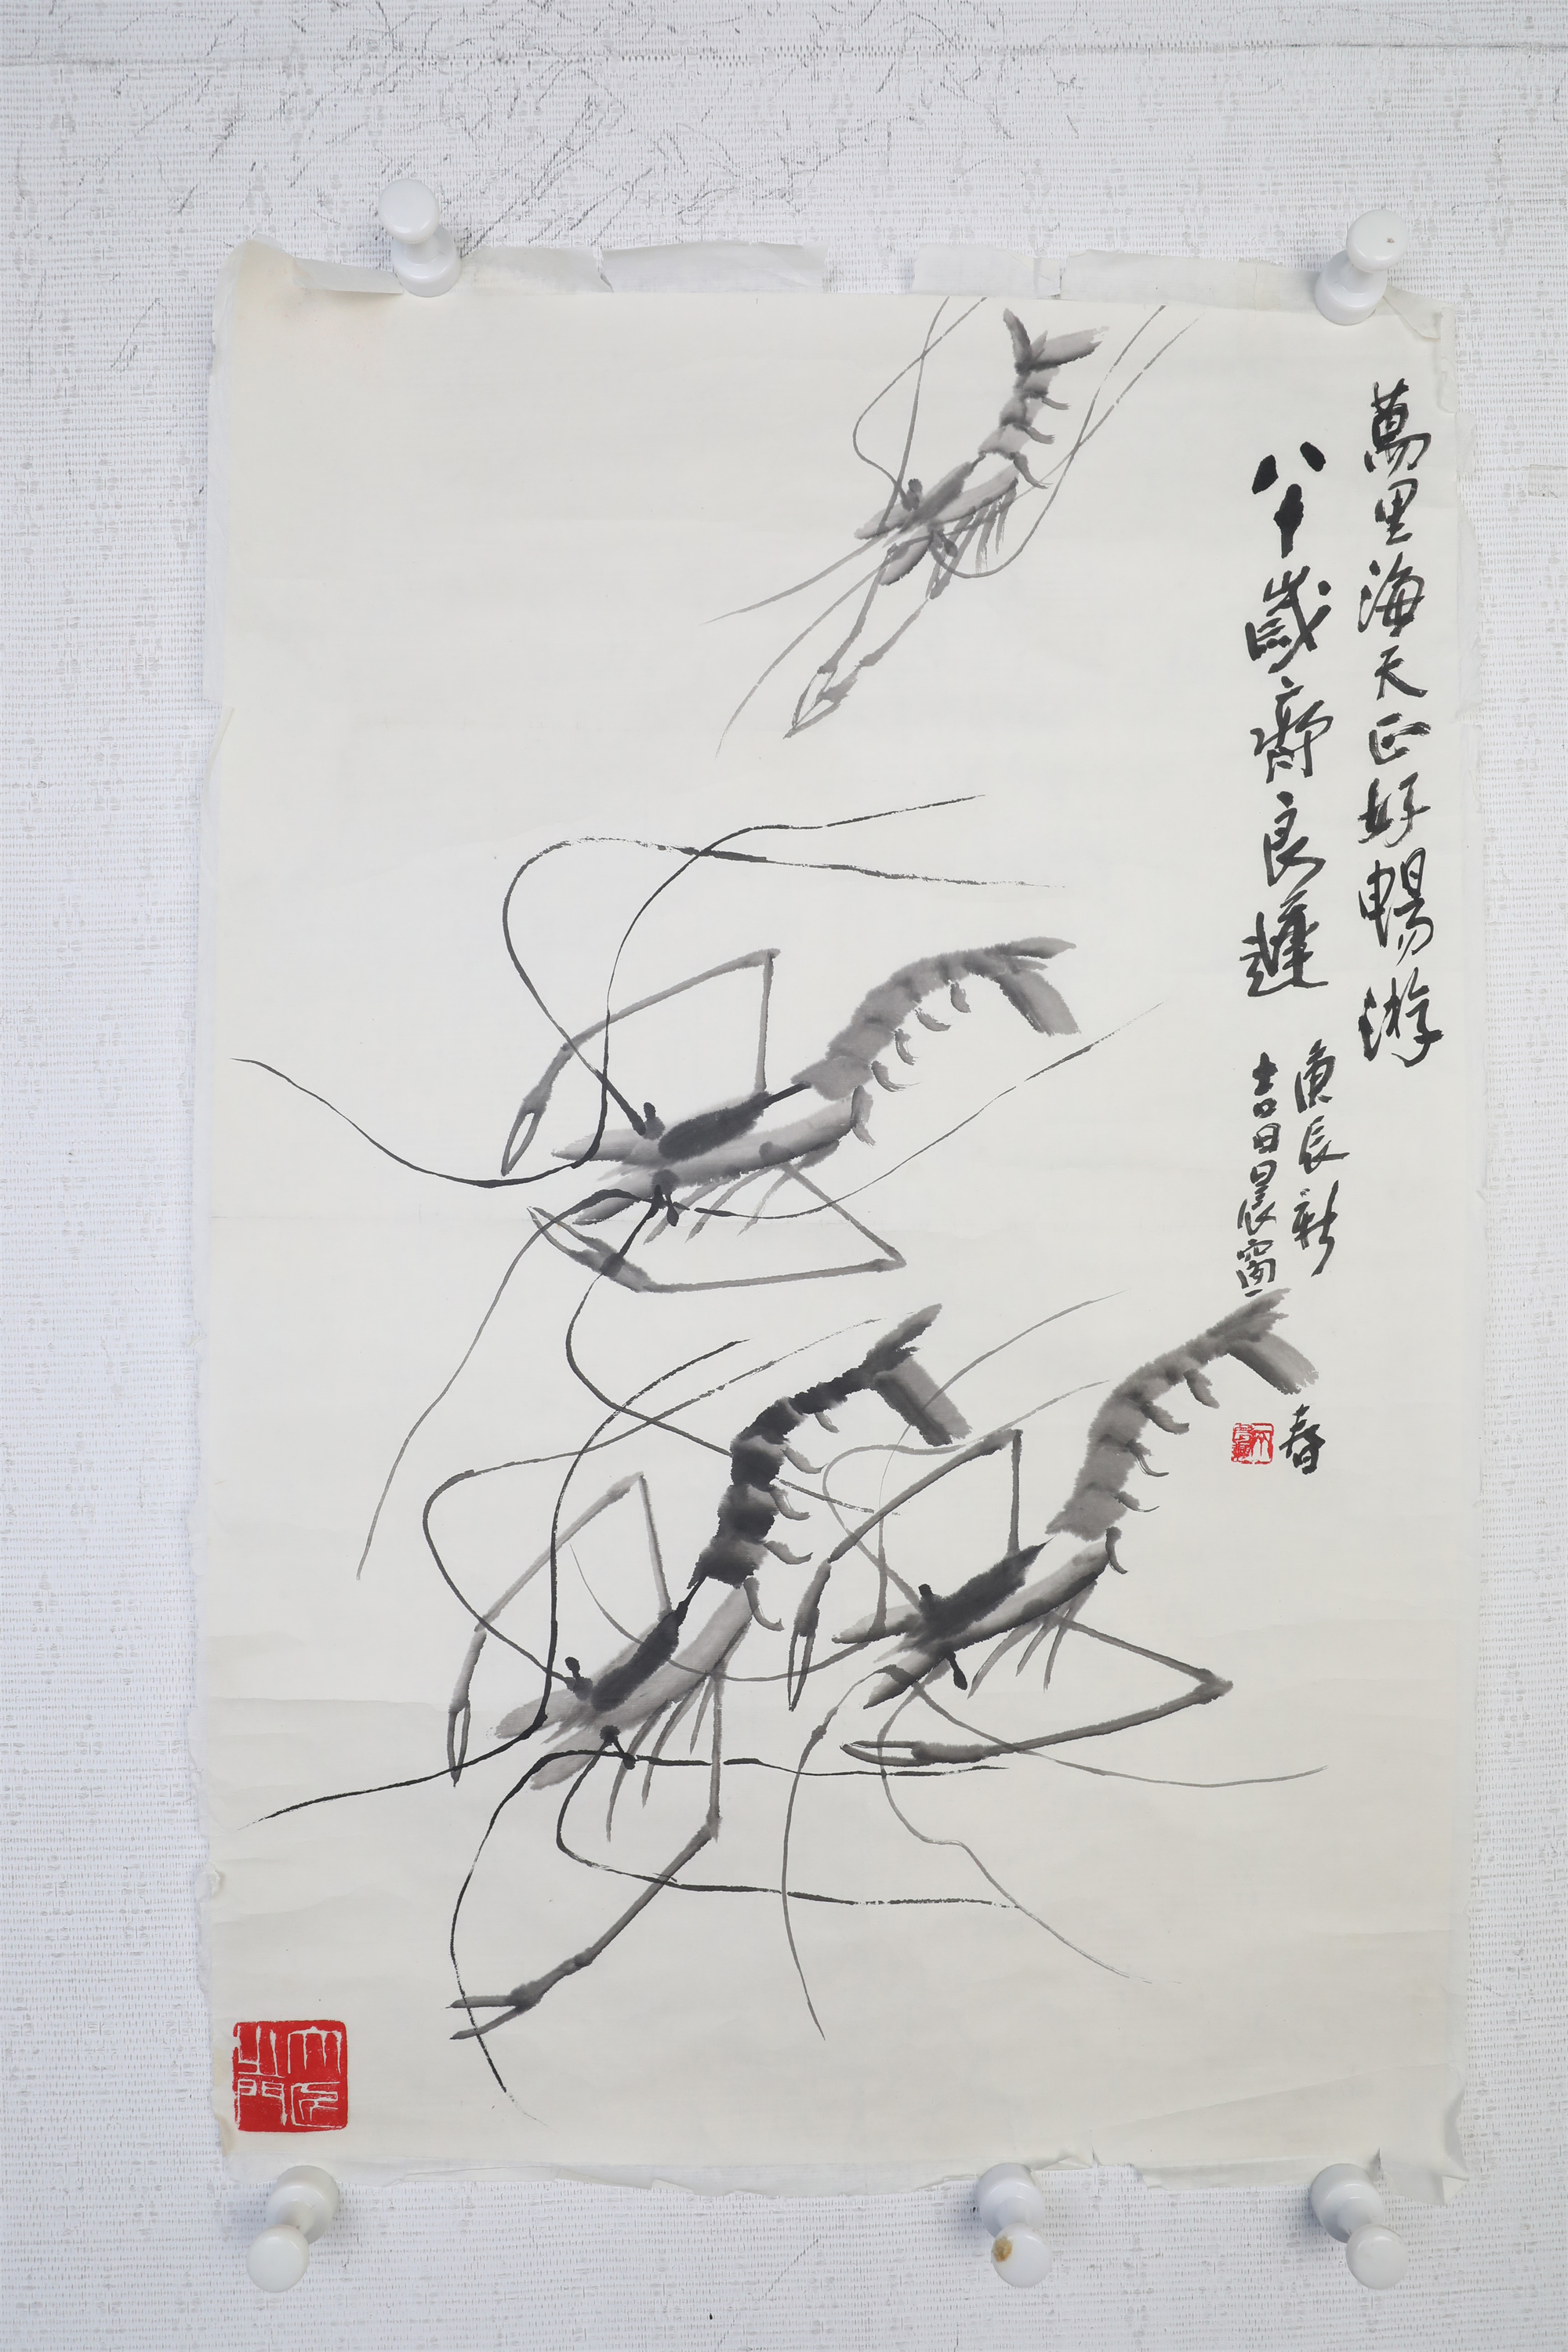 萬里海天正好暢游
八十歲齊良遲
庚辰新春
吉日晨窗
大匠之門